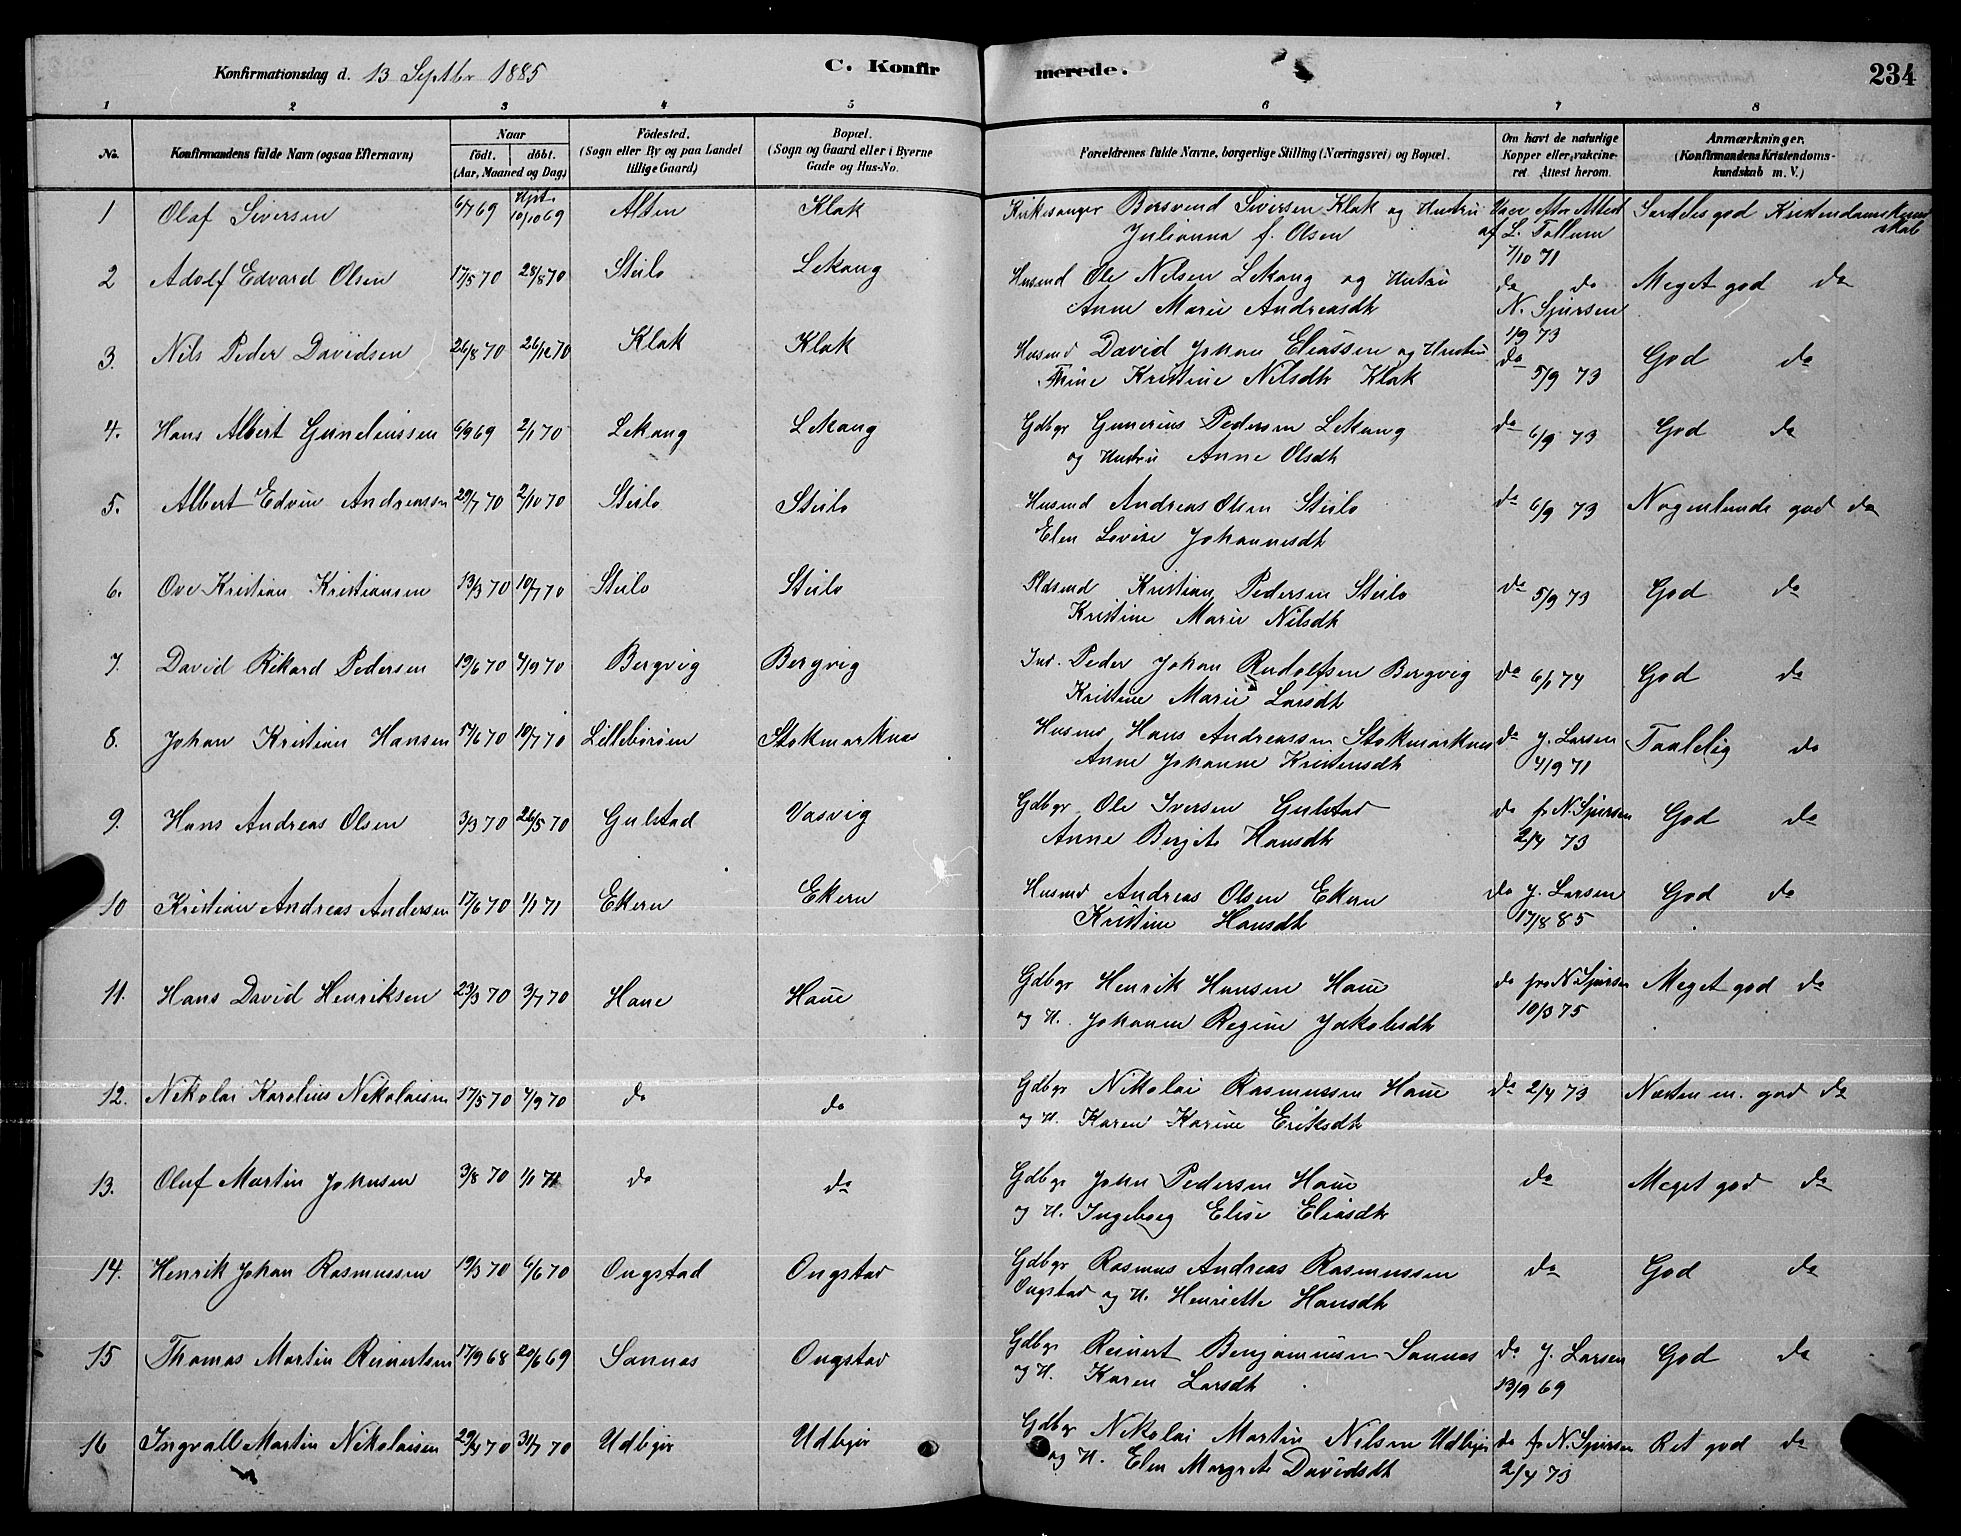 Konfirmationsdag d. 13 Septbr 1885
C. Konfirmerede.
234
1 2 3 4 5 6 7 8
No.
Konfirmandens fulde Navn (ogsaa Efternavn)
Naar födt. döbt. (Aar, Maaned og Dag)
Födested. (Sogn eller By og paa Landet tillige Gaard)
Bopæl. (Sogn og Gaard eller i Byerne Gade og Hus-No.
Forældrenes fulde Navne, borgerlige Stilling (Næringsvei) og Bopæl.
Om havt de naturlige Kopper eller vakcineret. Attest herom.
Anmærkninger. (Konfirmandens Kristendomskundskab m. V.)
1 Olaf Siversen 6/7 69 Hjdt. 10/10 69 Alten Klak Kirkesanger Borsvend Siversen Klak og Hustru Vacc efter Attest Særdeles god Kristendomskundskab
Julianna f. Olsen af L. Tollum 7/10 71
2 Adolf Edvard Olsen 17/5 70 28/8 70 Steilo Lekang Husmd Ole Nilsen Lekang og Hustru do do Meget god do
Anne Marie Andreasdtr N. Sjursen 1/9 73
3. Nils Peder Davidsen 26/8 70 26/12 70 Klak Klak Husmd David Johan Eliassen og Hustru do 5/9 73 God do
Trine Kristine Nilsdtr Klak
4. Hans Albert Guneliussen 6/9 69 2/1 70 Lekang Lekang Gdbgr Gunerius Pedersen Lekang do 6/9 73 God do
og Hustru Anne Olsdtr
5. Albert Edvin Andreassen 29/7 70 2/10 70 Steilo Steilo Husmd Andreas Olsen Steilo do 6/9 73 Nogenlunde god do
Elen Lovise Johannesdtr
6. Ove Kristian Kristiansen 13/3 70 10/7 70 Steilo Steilo Pladsmd Kristian Pedersen Steilo do 5/9 73 God do
Kristine Marie Nilsdtr
7. David Rikard Pedersen 19/6 70 4/9 70 Bergvig Bergvig Ind. Peder Johan Rudolfsen Bergvig do 6/1 74 God do
Kristine Marie Larsdtr
8. Johan Kristian Hansen 17/6 70 10/7 70 Lillebröen Stokmarknes Husmd Hans Andreassen Stokmarknes do J. Larsen Taalelig do
Anne Johanne Kristensdtr 4/9 71
9. Hans Andreas Olsen 3/3 70 26/5 70 Gulstad Vasvig Gdbgr Ole Iversen Gulstad do fr N. Sjursen God do
Anne Bergite Hansdtr 2/4 73
10 Kristian Andreas Andersen 17/6 70 1/1 71 Ekern Ekern Husmd Andreas Olsen Ekern do J. Larsen God do
Kristine Hansdtr 17/8 85
11. Hans David Henriksen 23/3 70 3/7 70 Haue Haue Gdbgr Henrik Hansen Haue do fra N Sjursen Meget god do
og H. Johanne Regine Jakobsdtr 10/3 75
12. Nikolai Karolius Nikolaisen 17/5 70 4/9 70 do do Gdbgr Nikolai Rasmussen Haue do 2/4 73 Næsten m. god do
og H. Karen Karine Eriksdtr
13. Oluf Martin Johnsen 3/8 70 1/1 71 do do Gdbgr John Pedersen Haue do Meget god do
og H. Ingeborg Elise Eliasdtr
14. Henrik Johan Rasmussen 19/3 70 6/6 70 Ongstad Ongstad Gdbgr Rasmus Andreas Rasmussen do God do
Ongstad og H. Henriette Hansdtr
15 Thomas Martin Reinertsen 17/9 68 20/6 69 Sannes Ongstad Gdbgr Reinert Benjaminsen Sannes do J. Larsen God do
og H. Karen Larsdtr 13/9 69
16 Ingvall Martin Nikolaisen 29/4 70 31/7 70 Udbjör Udbjör Gdbgr Nikolai Martin Nilsen Udbjör do fr N. Sjursen Ret god do
og H. Elen Margrete Davidsdtr 2/4 73